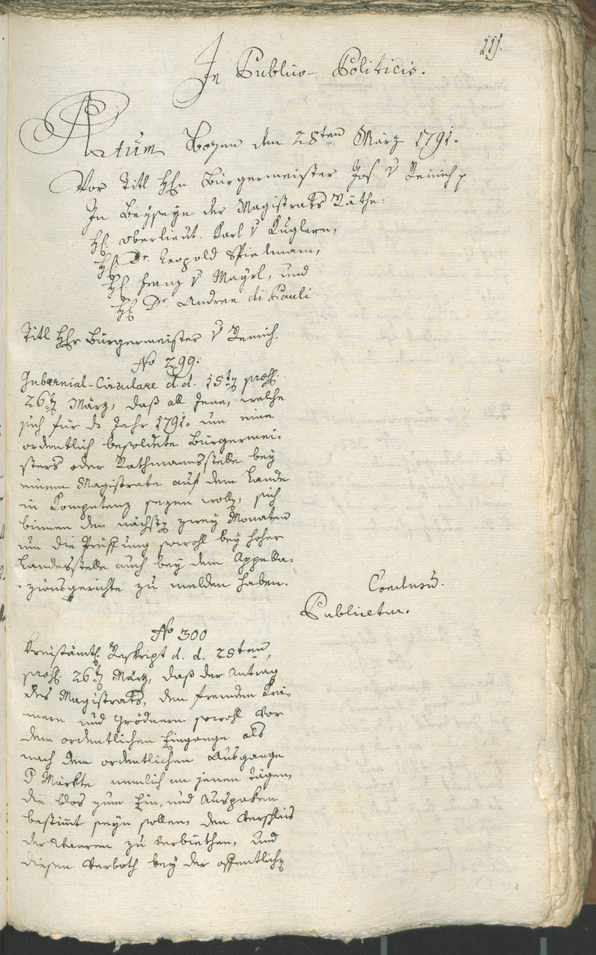 111.
In Publico-Politicis.
Actum Bozen den 28ten März 1791.
Vor Titl Hhn Bürgermeister Jos. v Remich
In Beyseyn der Magistrats Räthe:
Hh Oberlieut. Karl v Kuglern,
Hh Dr Leopold Spielmann,
Hh Franz v Mayrl, und
Hh Dr Andree di Pauli
Titl Hhr Bürgermeister v Remich.
No 299:
Gubernial-Circulare d. d. 15tn pross:
26tn März, daß all jene, welche
sich für ds Jahr 1791. um eine
ordentlich besoldete Bürgermei-
sters oder Rathmannsstelle bey
einem Magistrate auf dem Lande
in Kompetenz sezen wolln, sich
binnen den nächstn zwey Monaten
um die Prüffung sowohl bey hoher
Landesstelle auch bey dem Appella-
zionsgerichte zu melden haben.
Conclusum.
Publicetur.
No 300
Kreisämtl Reskript d. d. 25ten,
pross 26tn März, daß der Antrag
des Magistrats, den fremden Krä-
mern und Grödnern sowohl vor
dem ordentlichen Eingange als
nach dem ordentlichen Ausgange
d Märkte nemlich an jenen Tägen,
die blos zum Ein, und Auspaken
bestimt seyn sollen, den Verschleis
der Waaren zu verbiethen, und
diesen Verboth bey der offentlichn